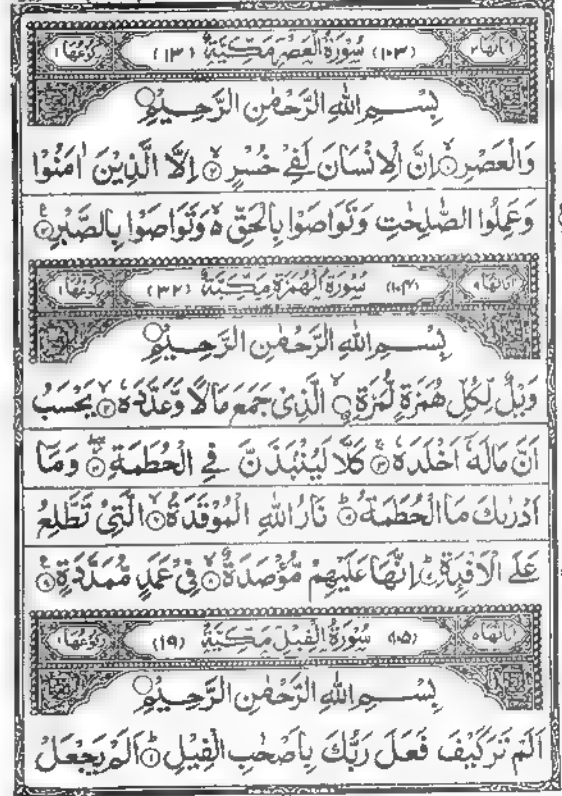 اٰيَاتُهَا ٣ (١٠٣) سُوْرَةُ الْعَصْرِ مَكِّيَّةٌ (١٣) رُكُوْعُهَا ١
بِسْمِ اللّٰهِ الرَّحْمٰنِ الرَّحِيْمِ
وَالْعَصْرِ ۙ﴿١﴾ اِنَّ الْاِنْسَانَ لَفِيْ خُسْرٍ ۙ﴿٢﴾ اِلَّا الَّذِيْنَ اٰمَنُوْا
وَعَمِلُوا الصّٰلِحٰتِ وَتَوَاصَوْا بِالْحَقِّ ۙ وَتَوَاصَوْا بِالصَّبْرِ ﴿٣﴾
اٰيَاتُهَا ٩ (١٠٤) سُوْرَةُ الْهُمَزَةِ مَكِّيَّةٌ (٣٢) رُكُوْعُهَا ١
بِسْمِ اللّٰهِ الرَّحْمٰنِ الرَّحِيْمِ
وَيْلٌ لِّكُلِّ هُمَزَةٍ لُّمَزَةِ ۙ﴿١﴾ الَّذِيْ جَمَعَ مَالًا وَّعَدَّدَهٗ ۙ﴿٢﴾ يَحْسَبُ
اَنَّ مَالَهٗٓ اَخْلَدَهٗ ۚ﴿٣﴾ كَلَّا لَيُنْۢبَذَنَّ فِي الْحُطَمَةِ ۖ﴿٤﴾ وَمَآ
اَدْرٰىكَ مَا الْحُطَمَةُ ؕ﴿٥﴾ نَارُ اللّٰهِ الْمُوْقَدَةُ ۙ﴿٦﴾ الَّتِيْ تَطَّلِعُ
عَلَى الْاَفْـِٕدَةِ ؕ﴿٧﴾ اِنَّهَا عَلَيْهِمْ مُّؤْصَدَةٌ ۙ﴿٨﴾ فِيْ عَمَدٍ مُّمَدَّدَةٍ ﴿٩﴾
اٰيَاتُهَا ٥ (١٠٥) سُوْرَةُ الْفِيْلِ مَكِّيَّةٌ (١٩) رُكُوْعُهَا ١
بِسْمِ اللّٰهِ الرَّحْمٰنِ الرَّحِيْمِ
اَلَمْ تَرَ كَيْفَ فَعَلَ رَبُّكَ بِاَصْحٰبِ الْفِيْلِ ؕ﴿١﴾ اَلَمْ يَجْعَلْ